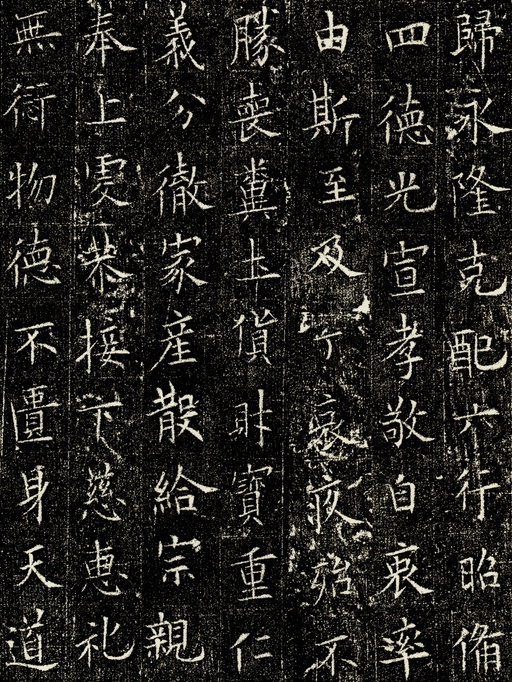 歸永隆克配六行昭備
四德光宣孝敬自衷率
由斯至及丁哀疚殆不
勝喪糞土貨財寶重仁
義分徹家產散給宗親
奉上虔恭接下慈惠礼
無衍物德不匱身天道